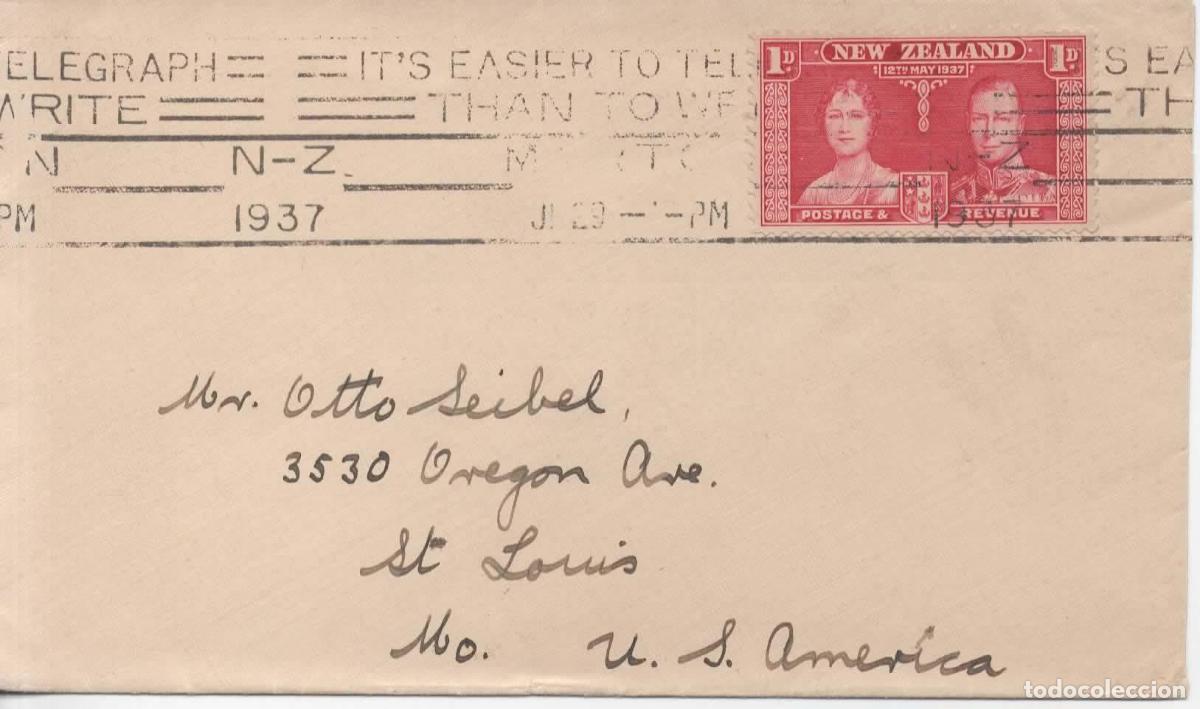 TELEGRAPH IT'S EASIER TO TEL S EA
WRITE THAN TO WRI TH
N N-Z. N-Z
PM 1937 29 PM 1937
1D NEW ZEALAND 1D
12TH MAY 1937
POSTAGE & REVENUE
Mr. Otto Seibel,
3530 Oregon Ave.
St Louis
Mo. U. S. America
todocoleccion